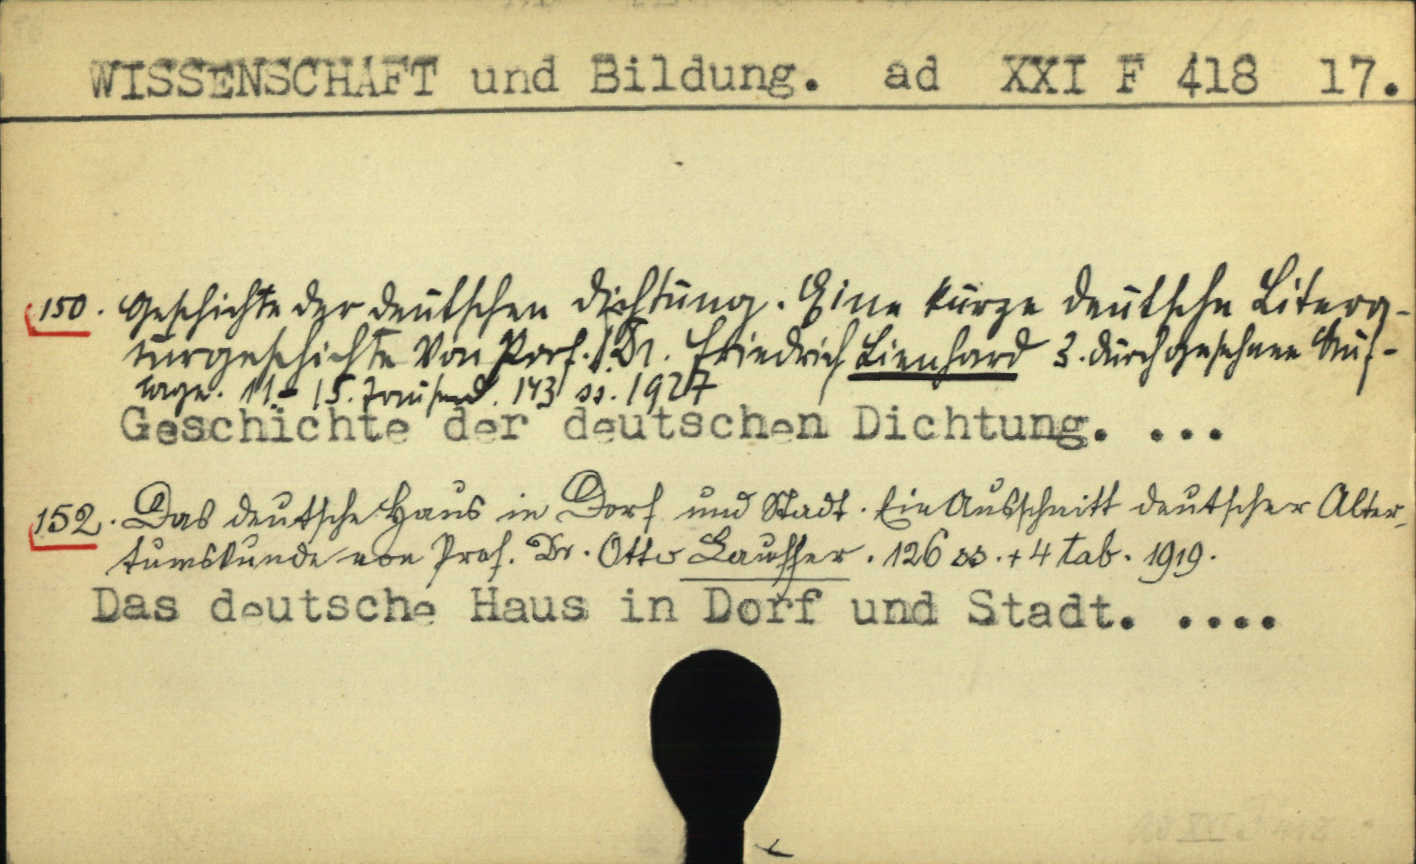 WISSENSCHAFT und Bildung. ad XXI F 418 17.
150. Geschichte der deutschen Dichtung. Eine kurze deutsche Litera-
turgeschichte von Prof. Dr. Friedrich Lienhard 3. durchgesehene Auf-
lage. 11.-15. Tausend. 143 ss. 1927
Geschichte der deutschen Dichtung. ...
152. Das deutsche Haus in Dorf und Stadt. Ein Ausschnitt deutscher Alter-
tumskunde von Prof. Dr. Otto Lauffer. 126 ss. + 4 tab. 1919.
Das deutsche Haus in Dorf und Stadt. ....